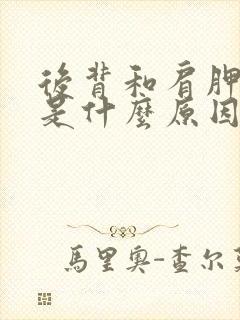 後背和肩胛
是什麼原因
馬里奧-查尔